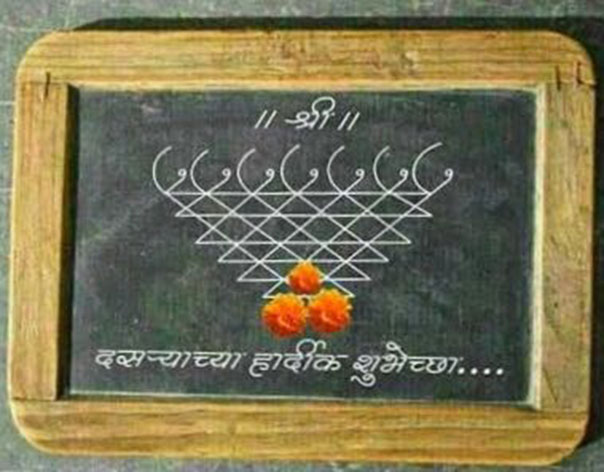 ॥ श्री ॥
दसऱ्याच्या हार्दीक शुभेच्छा....